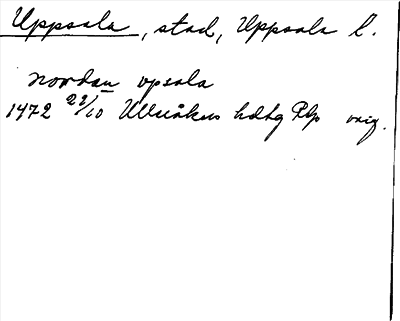 Uppsala, stad, Uppsala l.
nordan upsala
1472 22/10 Ulleråkers hdtg Plp orig.